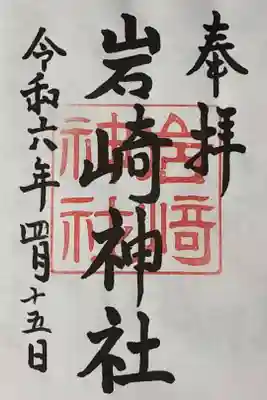 奉拝
岩崎神社
岩﨑神社
令和六年四月十五日